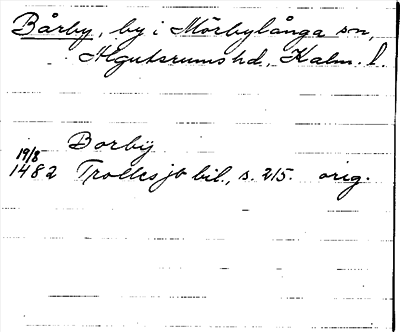 Bårby, by i Mörbylånga sn,
Algutsrums hd., Kalm. l.
Borby
19/8
1482 Trolles jb bil., s. 215. orig.